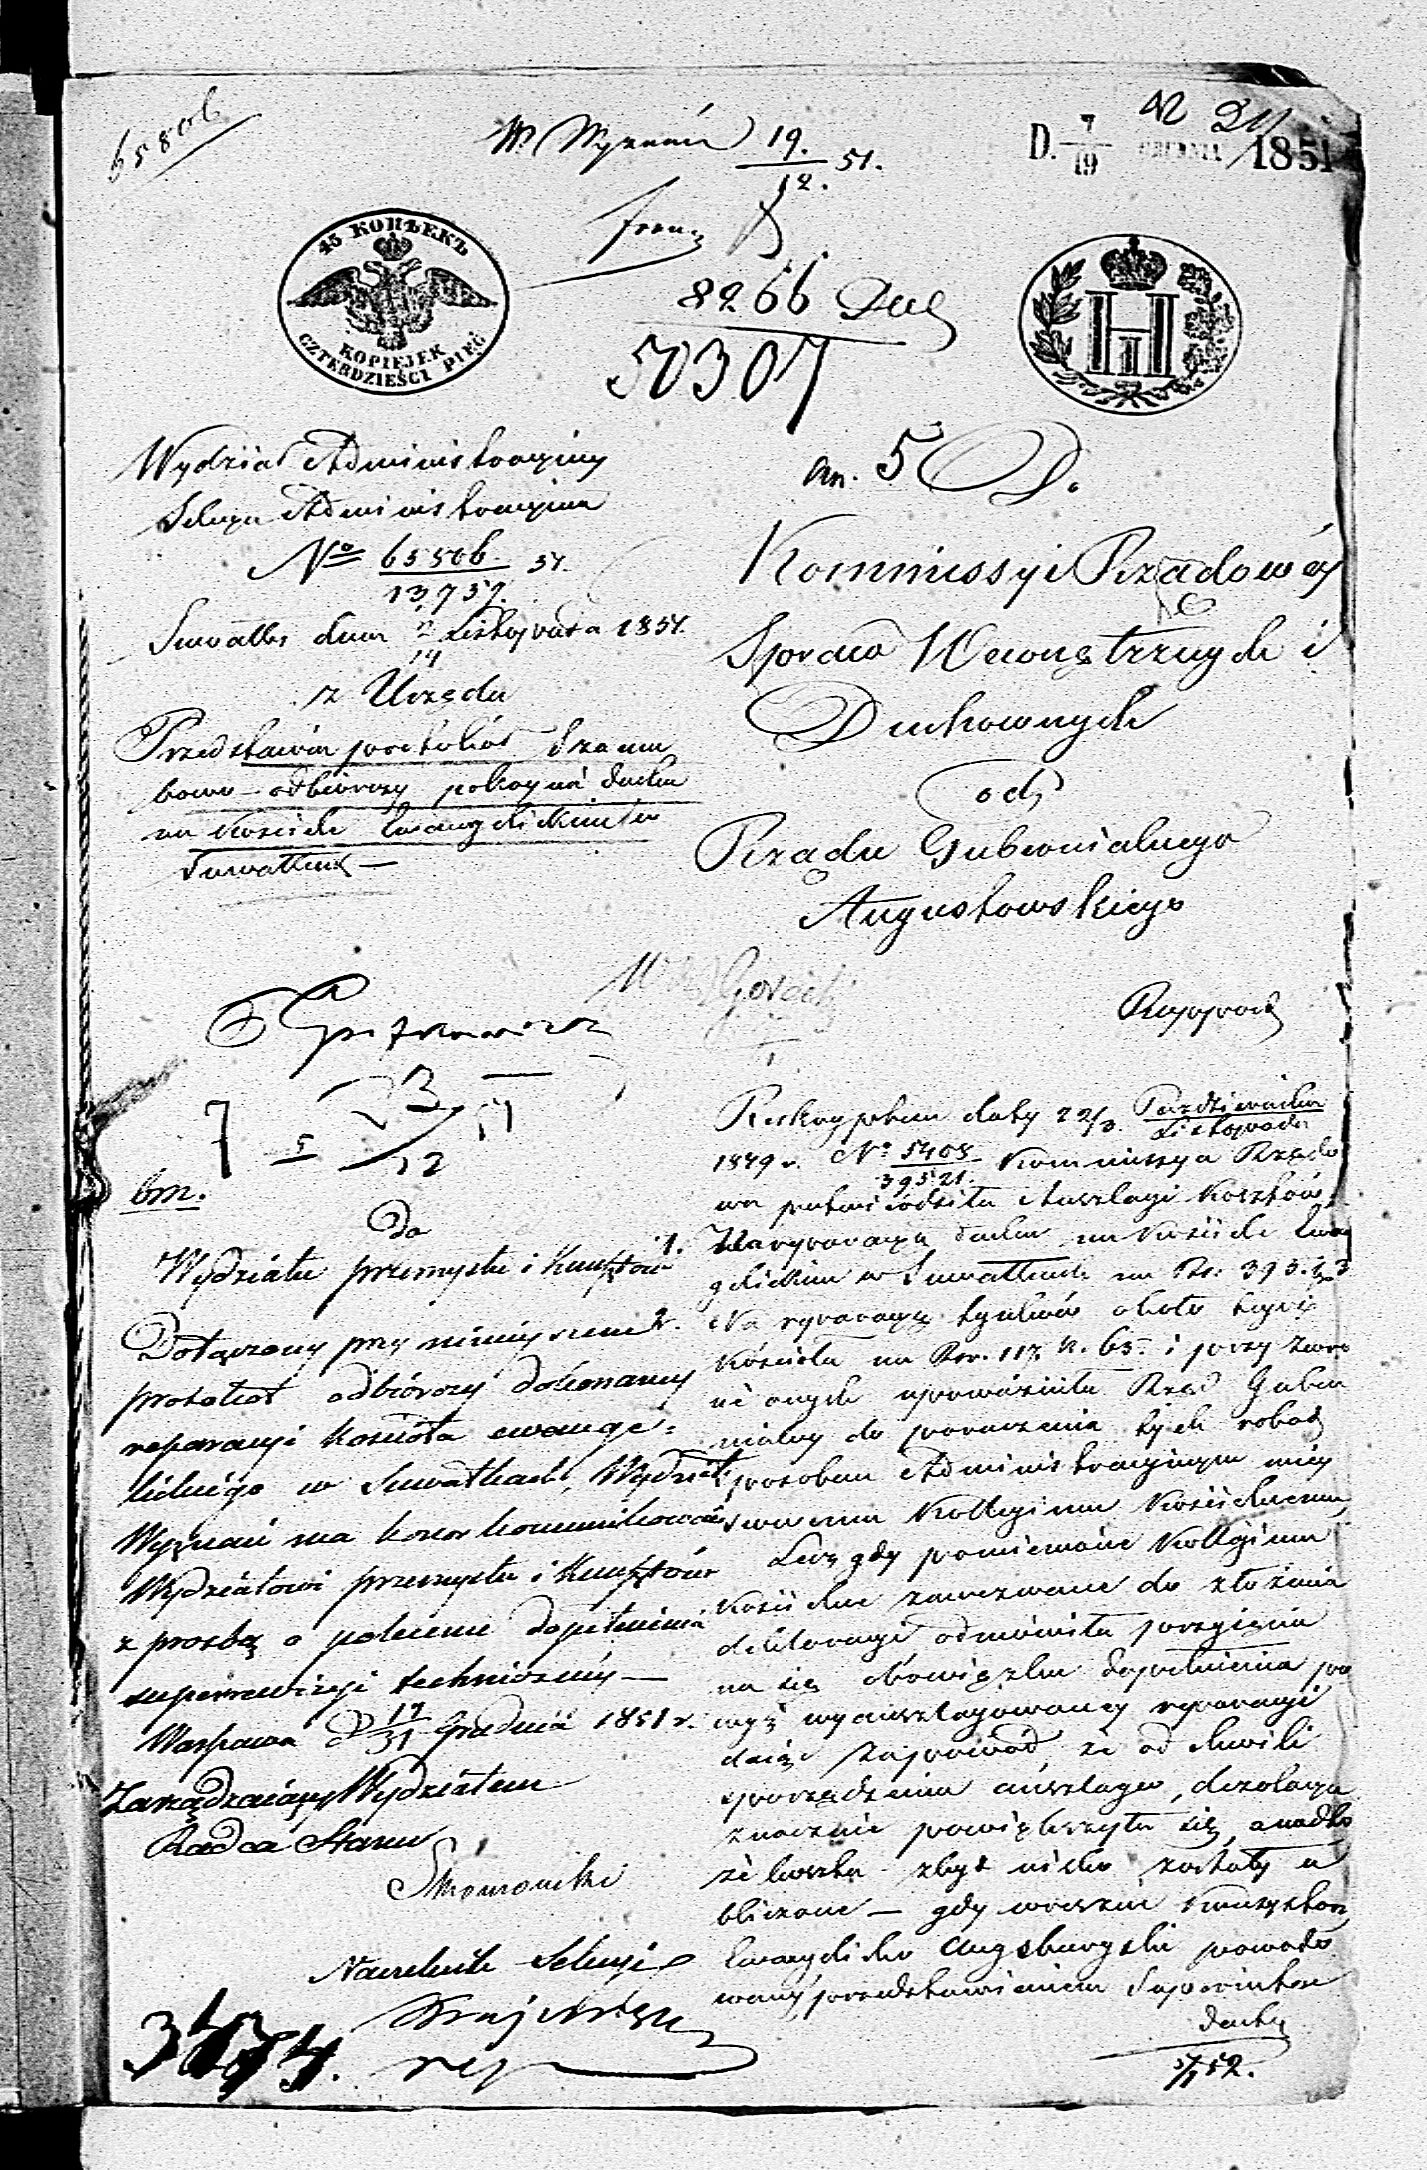 W. Wyznań 19./12. 51.
D. 7/19 GRUDNIA 1851
45 КОПѢЕКЪ
KOPIEJEK
CZTERDZIEŚCI PIĘĆ
H I
8266
50307
Wydział Administracyjny
Sekcya Administracyjna
No 63506/13757. 51.
Suwałki dnia 2/14 Listopada 1851.
z Urzędu
Przedstawia protokół
odbiorczy dachu
na kościele Ewangelickim w
Suwałkach —
an. 5 D.
Kommissyi Rządowéy
Spraw Wewnętrznych i
Duchownych
od
Rządu Gubernialnego
Augustowskiego
Rapport
bm.
Do
Wydziału przemysłu i Kunsztów
Dołączony przy niniejszem
protokół odbiorczy dokonanej
reparacyi kościoła ewange-
lickiego w Suwałkach, Wydział
Wyznań ma honor kommunikować
Wydziałowi przemysłu i Kunsztów
z prośbą o polecenie dopełnienia
superrewizyi technicznéj —
Warszawa d 19/31 Grudnia 1851 r.
Zarządzający Wydziałem
Radca Stanu
Naczelnik Sekcyi
3474.
Reskryptem daty 22/3. Października/Listopada
1849 r. No 5408/39521. Kommissya Rządo
wa potwierdziła Anszlagi kosztów
1. Na reparacyą dachu na kościele Ewan
gelickim w Suwałkach na Rs. 393.
2. Na reparacyę tynków około tegoż
kościoła na Rsr. 117 k. 65. i przy zwro
cie onych upoważniła Rząd Guber
nialny do poruczenia tych robót
sposobem Administracyjnym miej
scowemu Kollegium Kościelnemu,
Lecz gdy pomienione Kollegium
Kościelne zawezwane do złożenia
deklaracyi odmówiło przyjęcia
na się obowiązku dopełnienia po
wyż wyanszlagowanej reparacyi
dając za powód, że od chwili
sporządzenia anszlagu, dezolacya
znacznie powiększyła się, a nadto
że koszta zbyt nisko zostały o
bliczone — gdy wreszcie Konsystorz
Ewangelicko Augsburgski powodo
wany przedstawieniem Superinten
denta